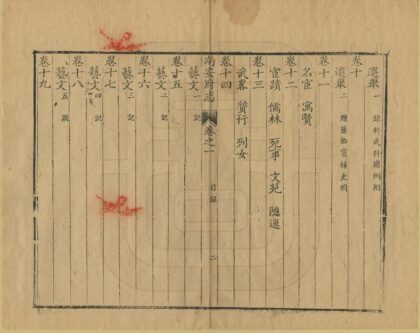 選舉 諸科武科援例附
卷十
選舉二
卷十一
名宦 寓賢
卷十二
宦蹟 儒林 死事 文苑 隱逸
卷十三
武畧 質行 列女
卷十四
南安府志 卷之一 目錄 二
藝文一 記
卷十五
藝文二 記
卷十六
藝文三 記
卷十七
藝文四 記
卷十八
藝文五 記
卷十九